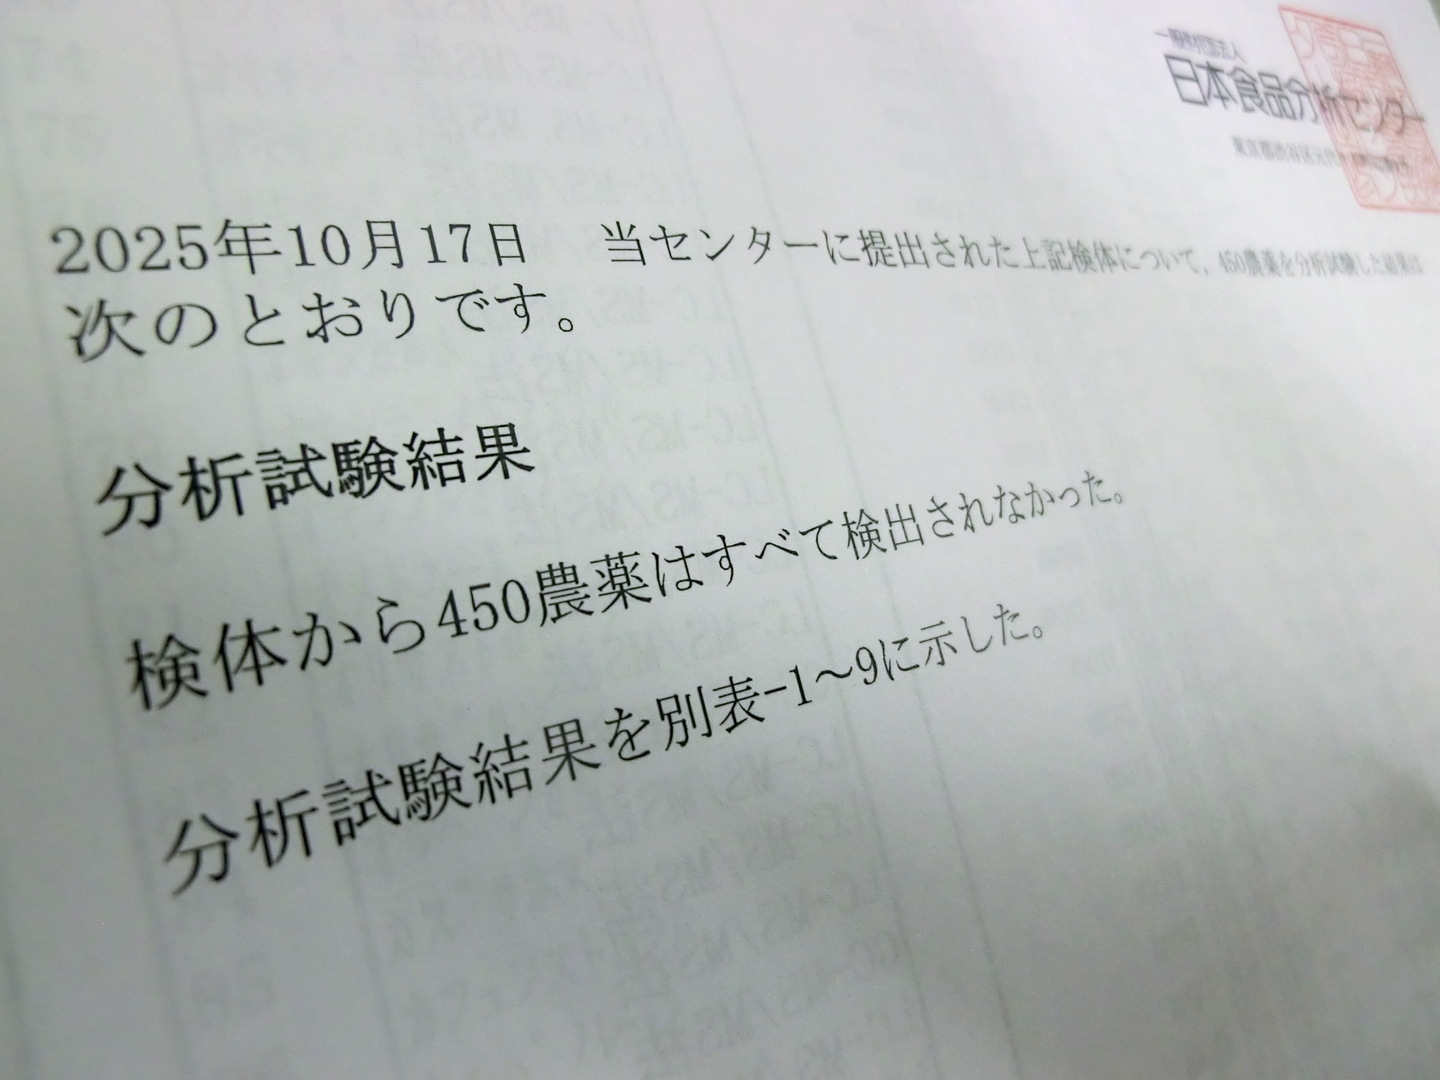 一般財団法人
日本食品分析センター
東京都渋谷区元代
2025年10月17日 当センターに提出された上記検体について,450農薬を分析試験した結果は
次のとおりです。
分析試験結果
検体から450農薬はすべて検出されなかった。
分析試験結果を別表-1～9に示した。